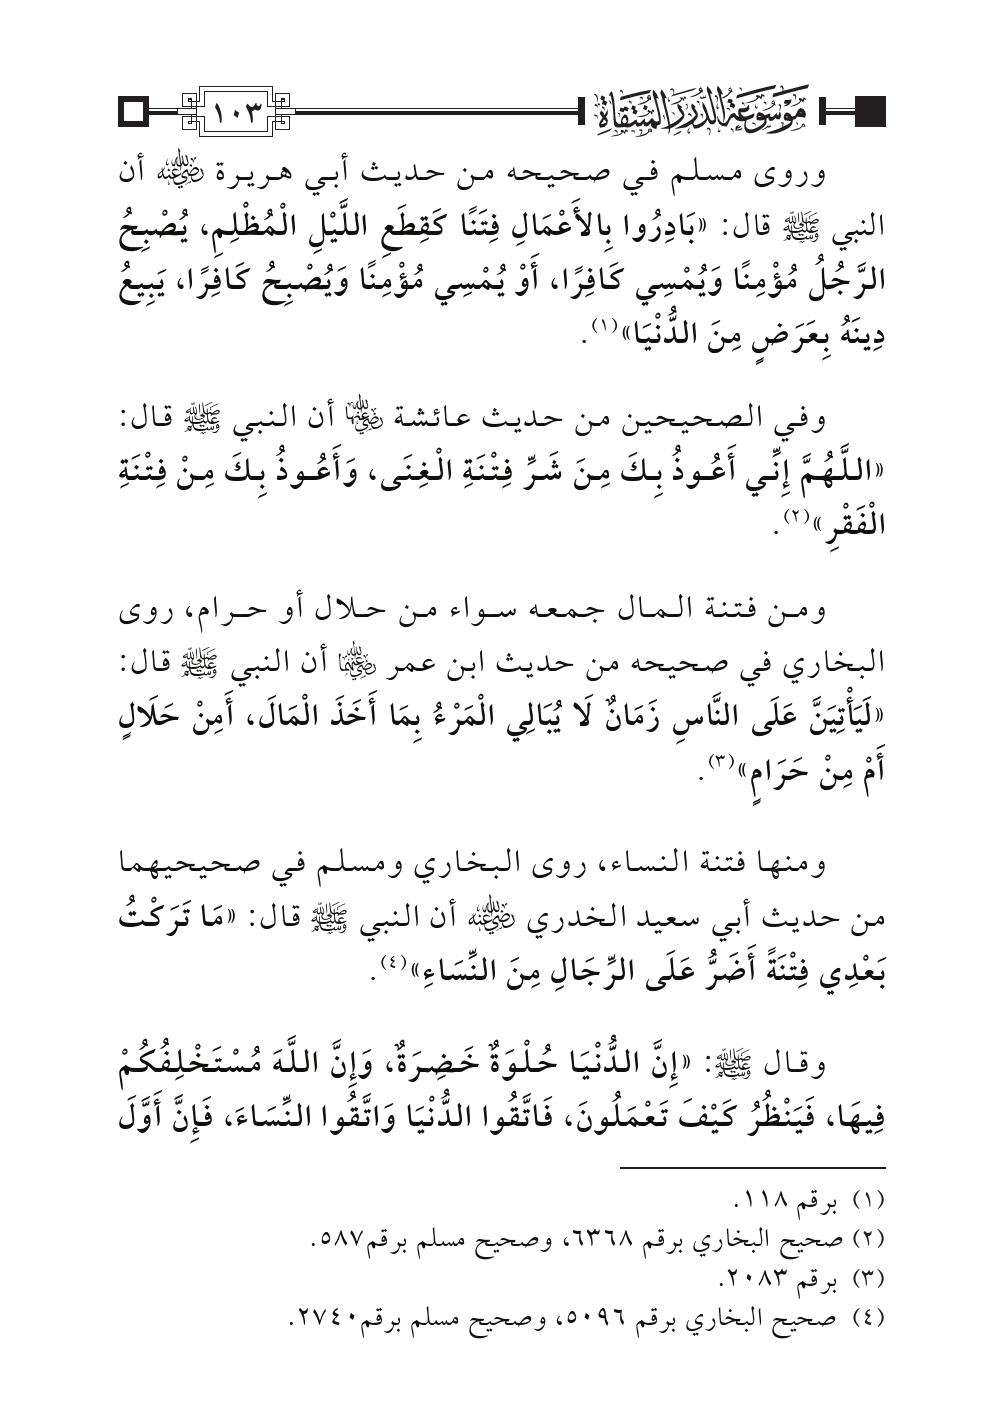 موسوعة الدرر المنتقاة
١٠٣
وروى مسلم في صحيحه من حديث أبي هريرة رضي الله عنه أن
النبي ﷺ قال: «بَادِرُوا بِالأَعْمَالِ فِتَنًا كَقِطَعِ اللَّيْلِ الْمُظْلِمِ، يُصْبِحُ
الرَّجُلُ مُؤْمِنًا وَيُمْسِي كَافِرًا، أَوْ يُمْسِي مُؤْمِنًا وَيُصْبِحُ كَافِرًا، يَبِيعُ
دِينَهُ بِعَرَضٍ مِنَ الدُّنْيَا»(١).
وفي الصحيحين من حديث عائشة رضي الله عنها أن النبي ﷺ قال:
«اللَّهُمَّ إِنِّي أَعُوذُ بِكَ مِنَ شَرِّ فِتْنَةِ الْغِنَى، وَأَعُوذُ بِكَ مِنْ فِتْنَةِ
الْفَقْرِ»(٢).
ومن فتنة المال جمعه سواء من حلال أو حرام، روى
البخاري في صحيحه من حديث ابن عمر رضي الله عنهما أن النبي ﷺ قال:
«لَيَأْتِيَنَّ عَلَى النَّاسِ زَمَانٌ لَا يُبَالِي الْمَرْءُ بِمَا أَخَذَ الْمَالَ، أَمِنْ حَلَالٍ
أَمْ مِنْ حَرَامٍ»(٣).
ومنها فتنة النساء، روى البخاري ومسلم في صحيحيهما
من حديث أبي سعيد الخدري رضي الله عنه أن النبي ﷺ قال: «مَا تَرَكْتُ
بَعْدِي فِتْنَةً أَضَرُّ عَلَى الرِّجَالِ مِنَ النِّسَاءِ»(٤).
وقال ﷺ: «إِنَّ الدُّنْيَا حُلْوَةٌ خَضِرَةٌ، وَإِنَّ اللَّهَ مُسْتَخْلِفُكُمْ
فِيهَا، فَيَنْظُرُ كَيْفَ تَعْمَلُونَ، فَاتَّقُوا الدُّنْيَا وَاتَّقُوا النِّسَاءَ، فَإِنَّ أَوَّلَ
(١) برقم ١١٨.
(٢) صحيح البخاري برقم ٦٣٦٨، وصحيح مسلم برقم٥٨٧.
(٣) برقم ٢٠٨٣.
(٤) صحيح البخاري برقم ٥٠٩٦، وصحيح مسلم برقم٢٧٤٠.